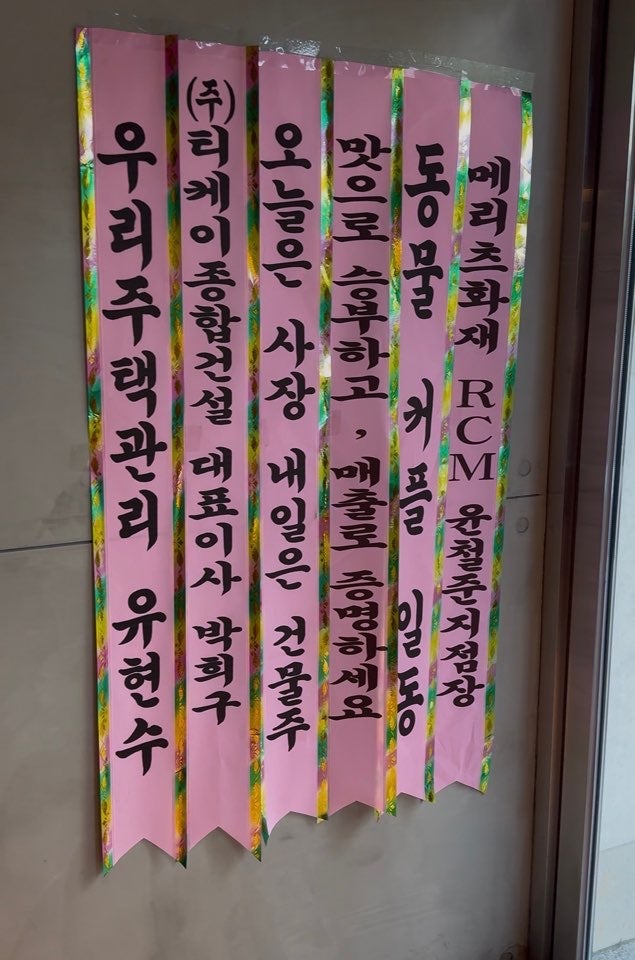 우리주택관리 유현수
(주)티케이종합건설 대표이사 박희구
오늘은 사장 내일은 건물주
맛으로 승부하고, 매출로 증명하세요
동물 커플 일동
메리츠화재 RCM 윤철준지점장